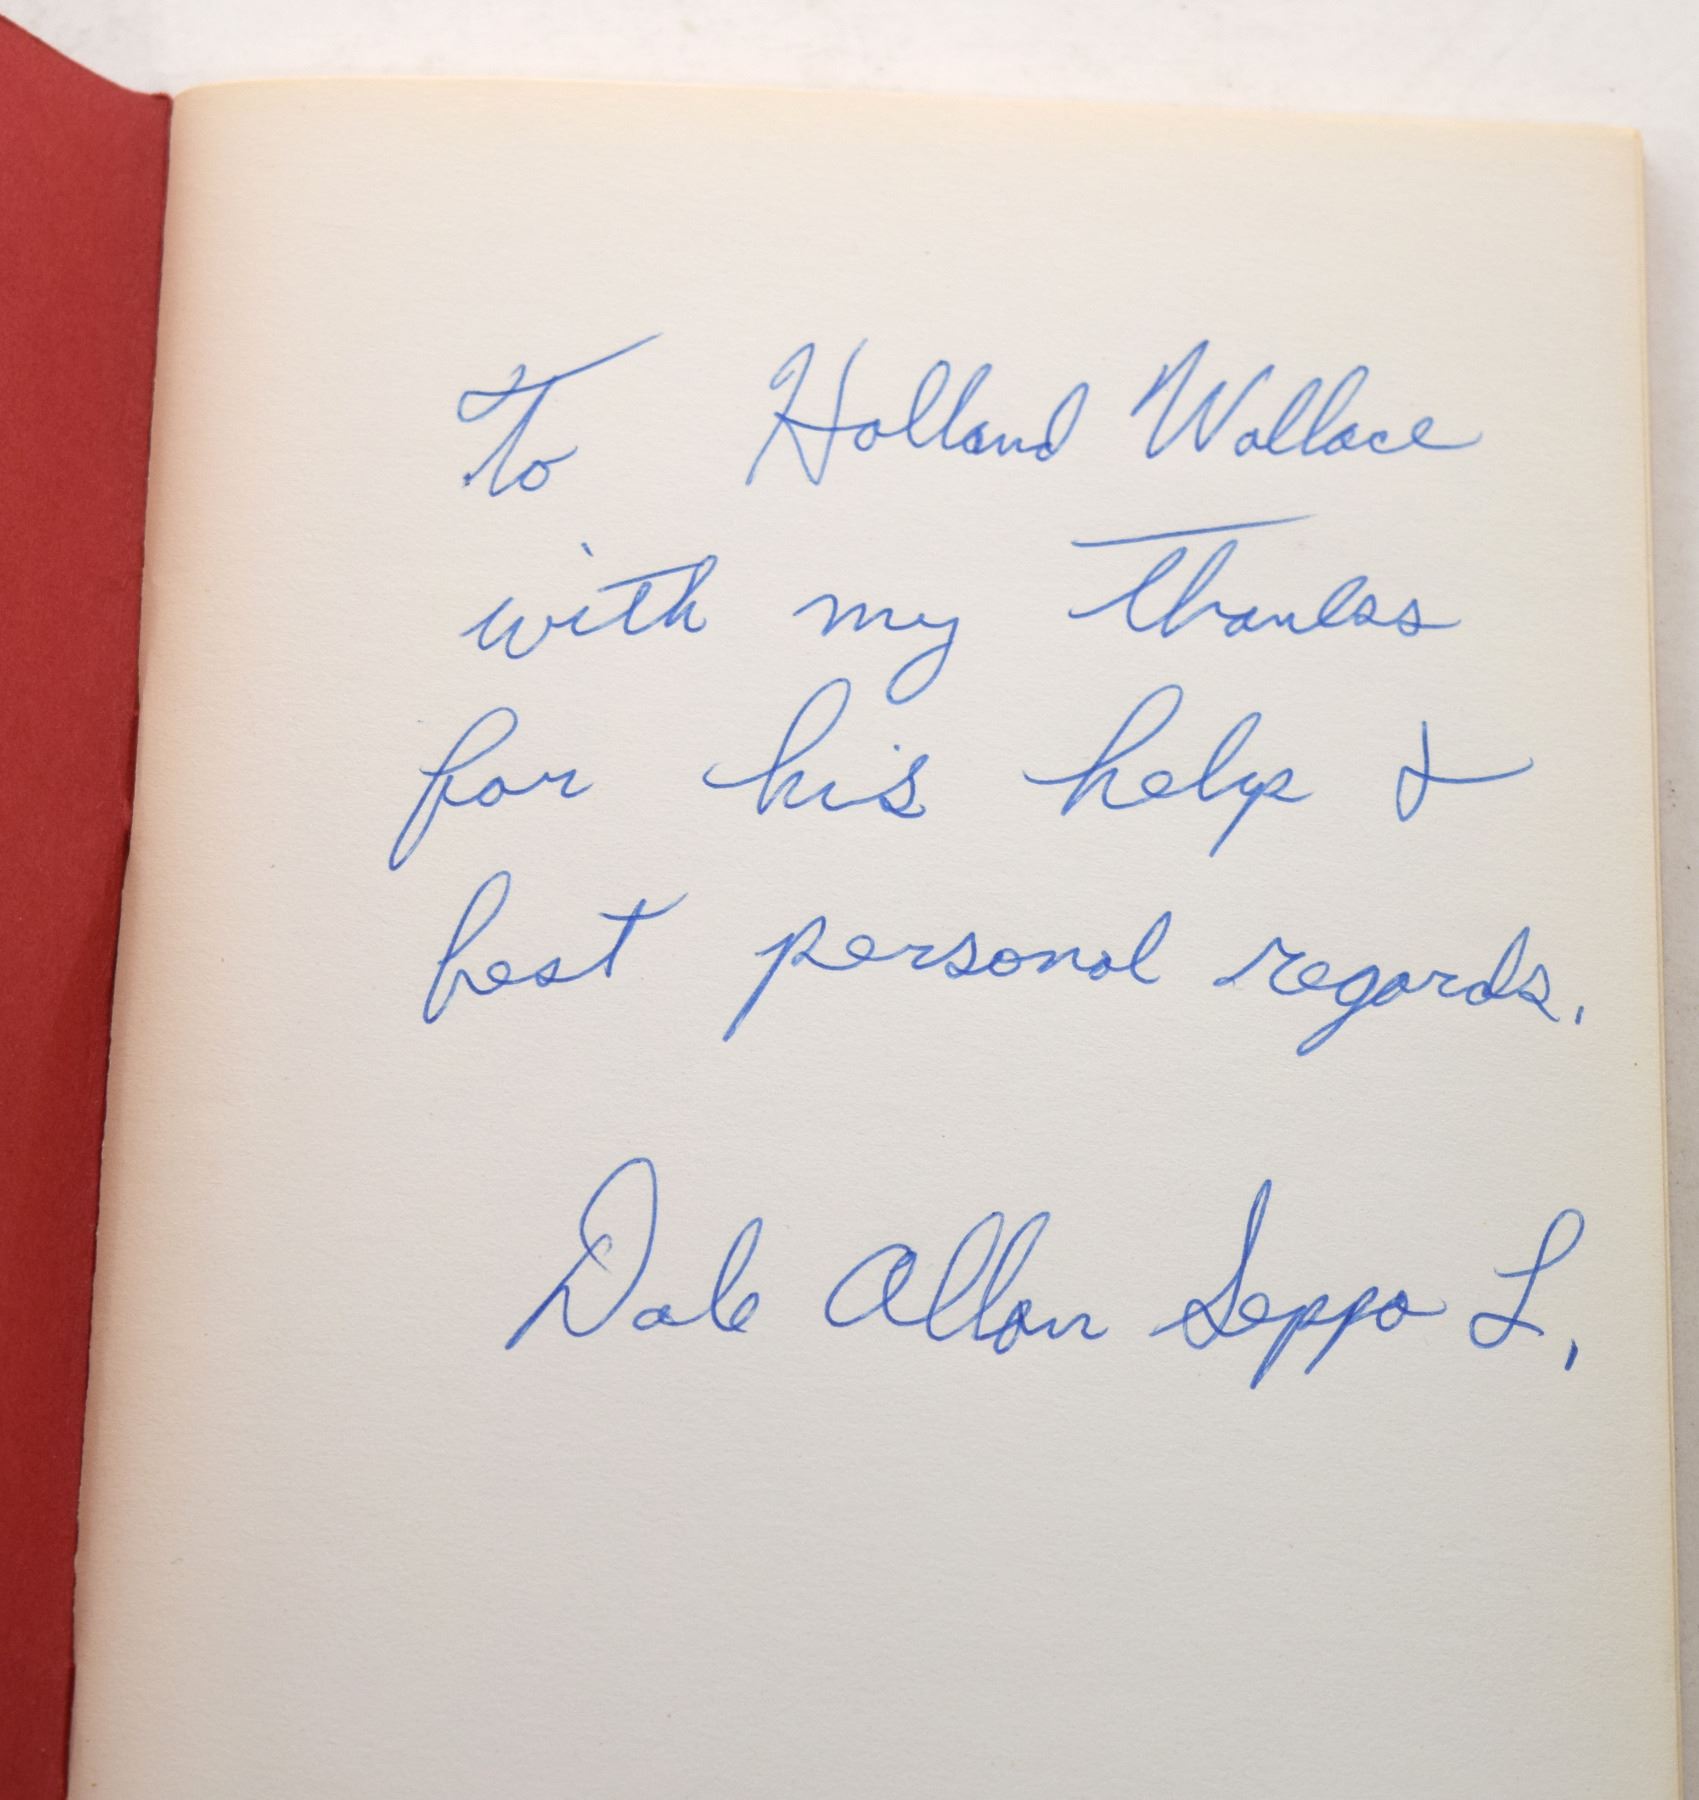 To Holland Wallace
with my thanks
for his help &
best personal regards.
Dale Allan Seppa L.